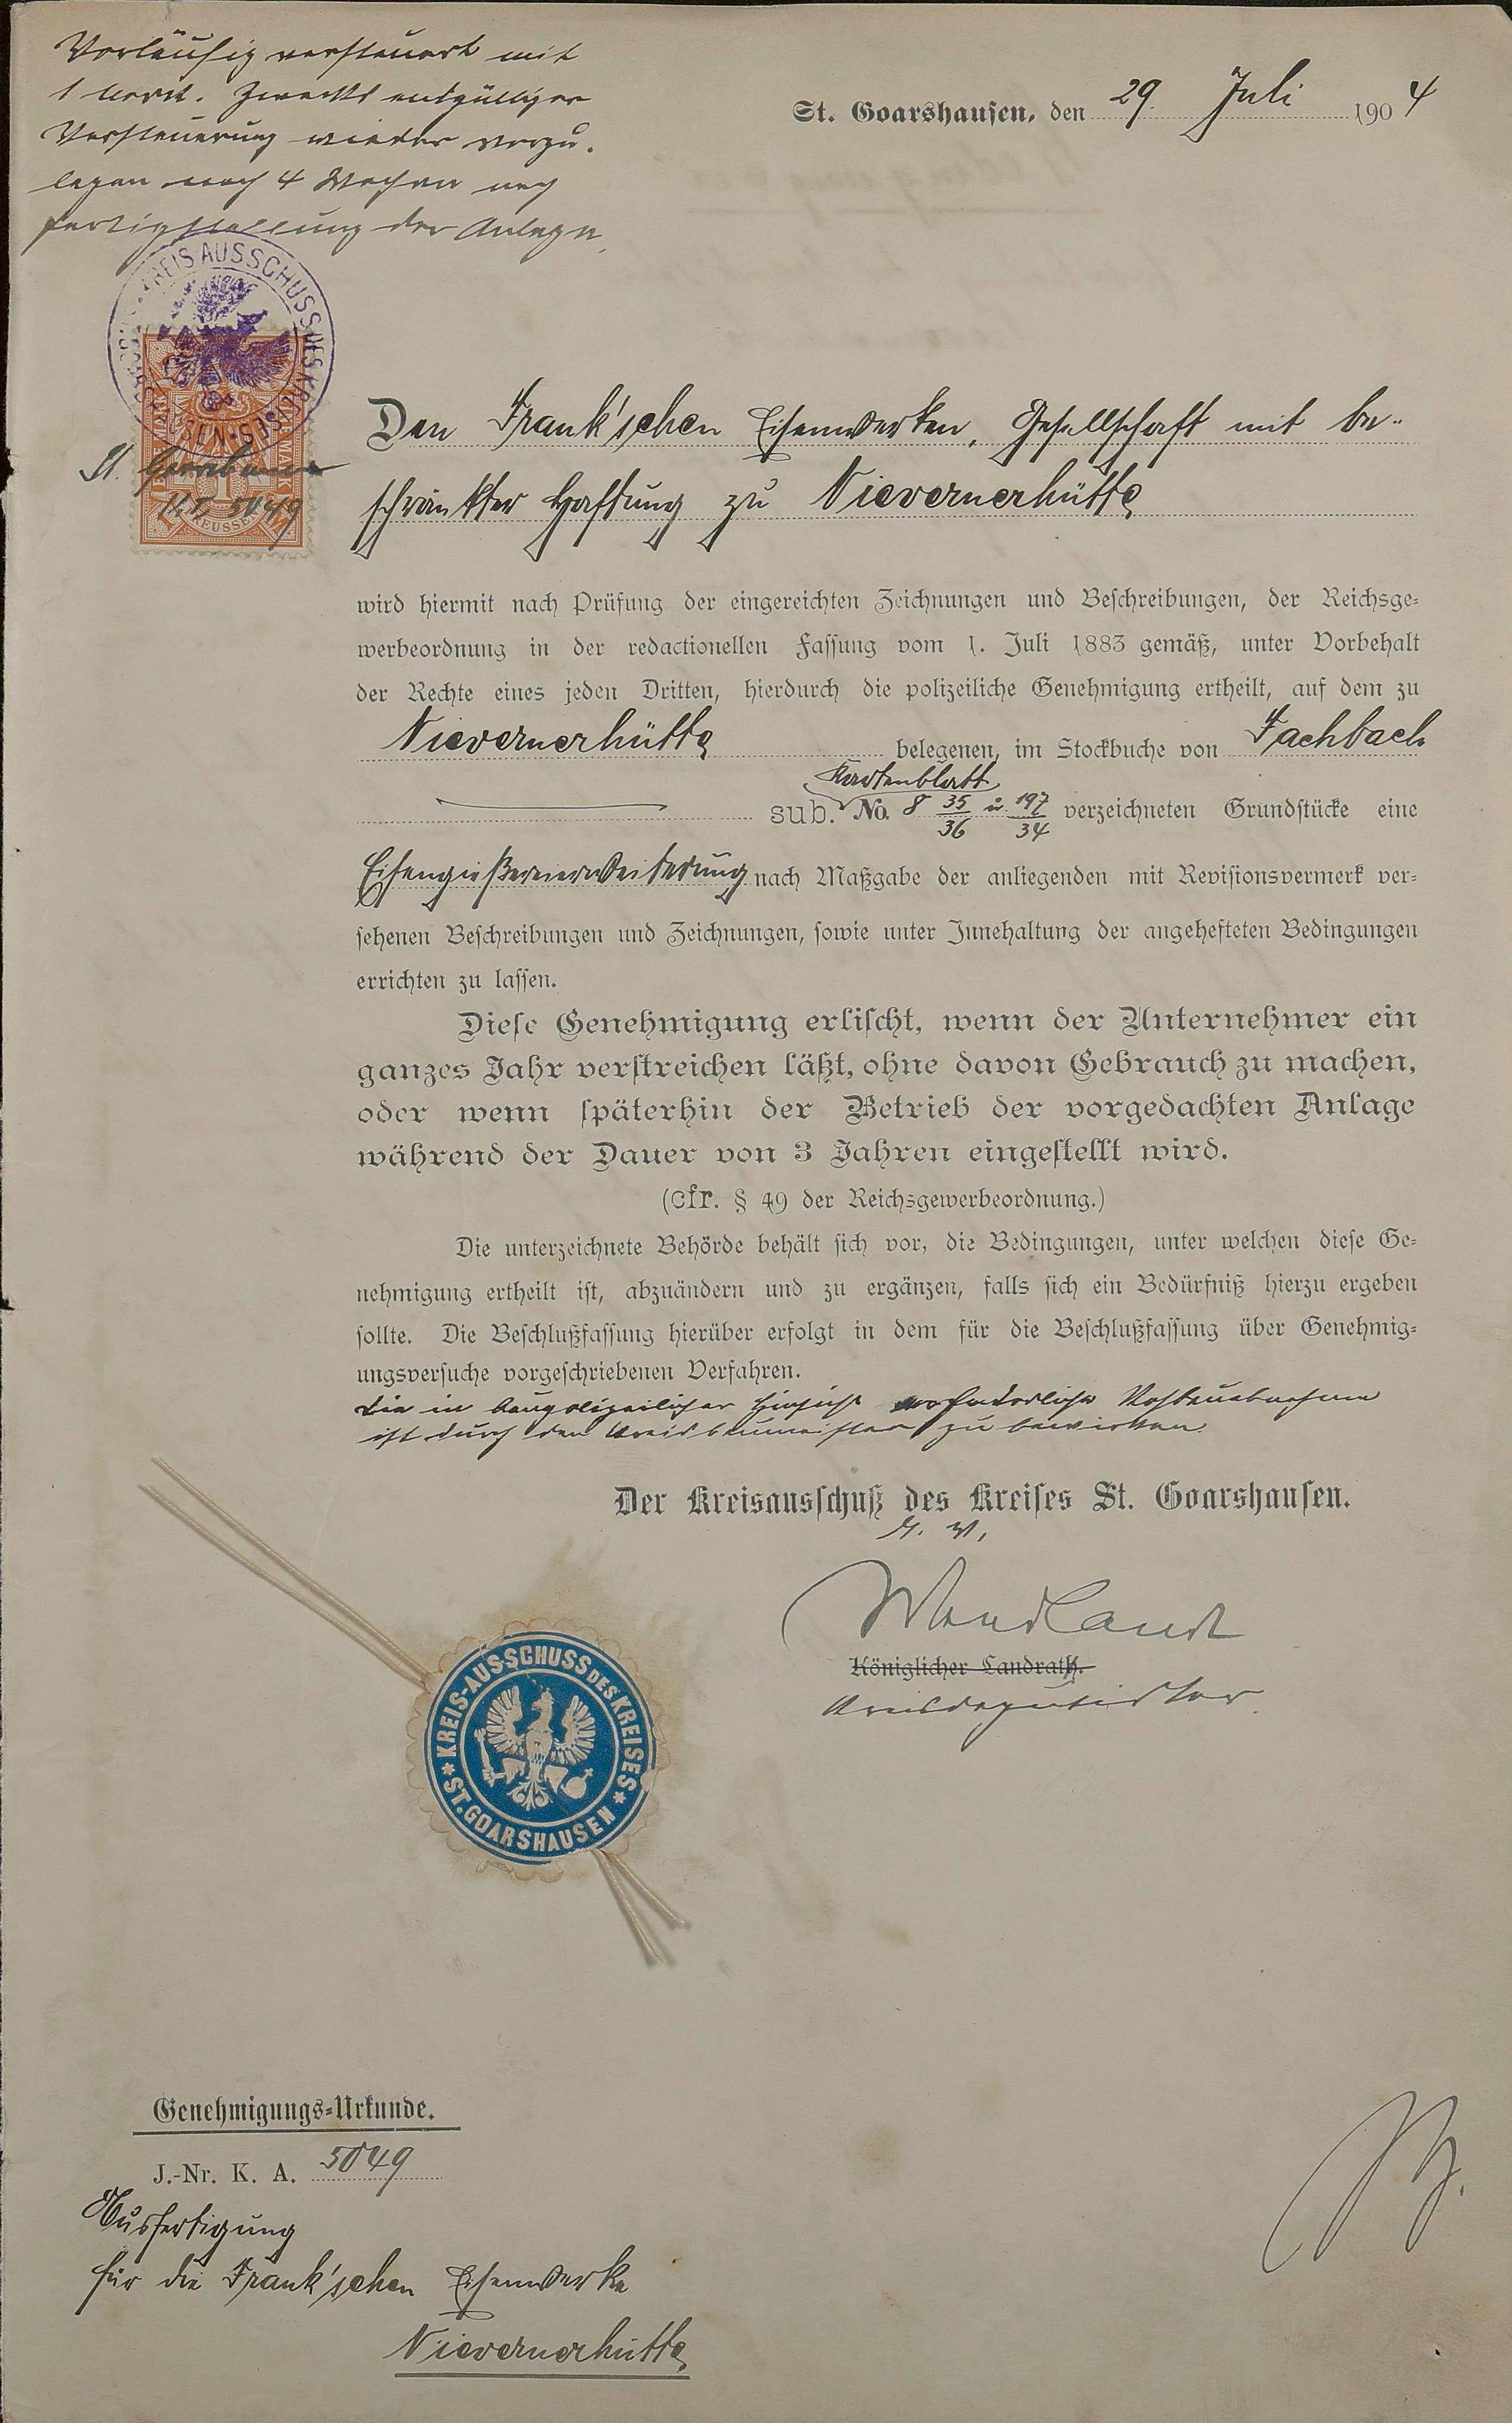 Vorläufig versteuert mit
1 Mark. Zwecks entgültiger
Versteuerung wieder vorzu-
legen nach 4 Wochen nach
Fertigstellung der Anlage.
St. Goarshausen, den 29. Juli 1904
KREIS AUSSCHUSS DES KREISES
St. Goarshausen
5049
Den Frank'schen Eisenwerken, Gesellschaft mit be-
schränkter Haftung zu Nievernerhütte
wird hiermit nach Prüfung der eingereichten Zeichnungen und Beschreibungen, der Reichsge-
werbeordnung in der redactionellen Fassung vom 1. Juli 1883 gemäß, unter Vorbehalt
der Rechte eines jeden Dritten, hierdurch die polizeiliche Genehmigung ertheilt, auf dem zu
Nievernerhütte belegenen, im Stockbuche von Fachbach
Kartenblatt
sub. No. 8 35/36 u. 197/34 verzeichneten Grundstücke eine
Eisengießereierweiterung nach Maßgabe der anliegenden mit Revisionsvermerk ver-
sehenen Beschreibungen und Zeichnungen, sowie unter Innehaltung der angehefteten Bedingungen
errichten zu lassen.
Diese Genehmigung erlischt, wenn der Unternehmer ein
ganzes Jahr verstreichen läßt, ohne davon Gebrauch zu machen,
oder wenn späterhin der Betrieb der vorgedachten Anlage
während der Dauer von 3 Jahren eingestellt wird.
(cfr. § 49 der Reichsgewerbeordnung.)
Die unterzeichnete Behörde behält sich vor, die Bedingungen, unter welchen diese Ge-
nehmigung ertheilt ist, abzuändern und zu ergänzen, falls sich ein Bedürfniß hierzu ergeben
sollte. Die Beschlußfassung hierüber erfolgt in dem für die Beschlußfassung über Genehmig-
ungsversuche vorgeschriebenen Verfahren.
Die in baupolizeilicher Hinsicht erforderliche Rohbauabnahme
ist durch den Kreisbaumeister zu bewirken.
Der Kreisausschuß des Kreises St. Goarshausen.
Wendlandt
Königlicher Landrath.
Kreisdeputirter.
KREIS-AUSSCHUSS DES KREISES
ST. GOARSHAUSEN
Genehmigungs-Urkunde.
J.-Nr. K. A. 5049
Ausfertigung
für die Frank'schen Eisenwerke
Nievernerhütte